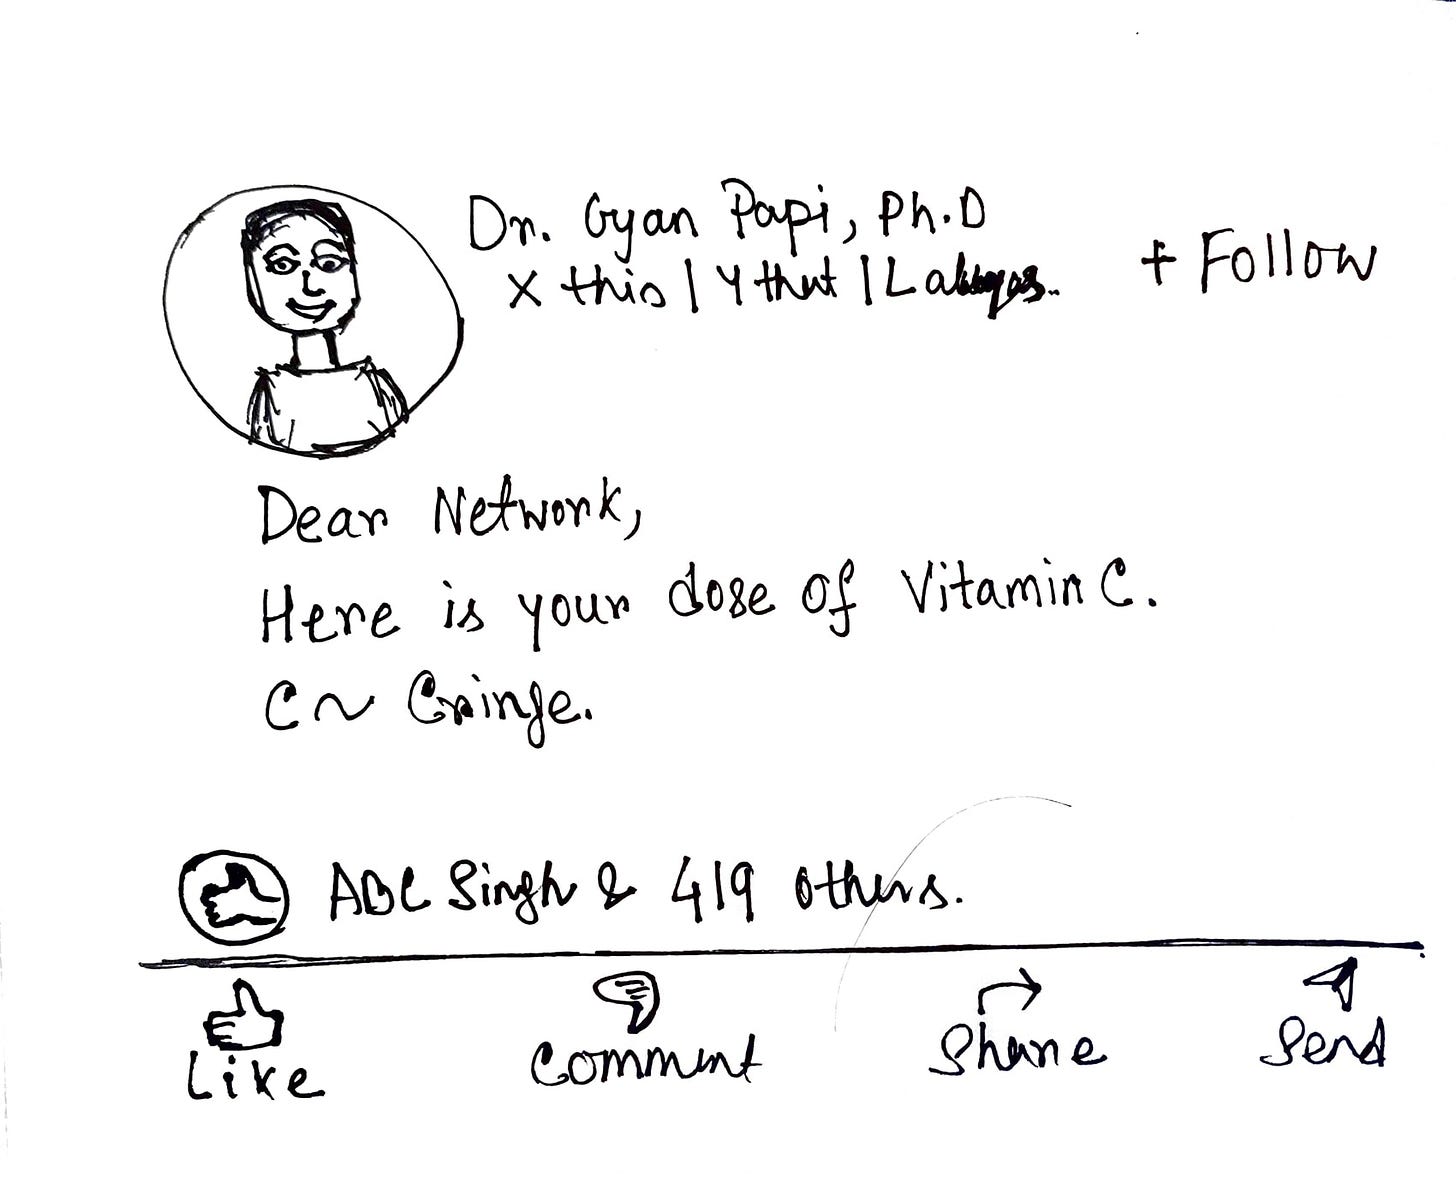 Dr. Gyan Papi, Ph.D
X this | Y that |
+ Follow
Dear Network,
Here is your dose of Vitamin C.
C ~ Cringe.
ABC Singh & 419 others.
Like
Comment
Share
Send